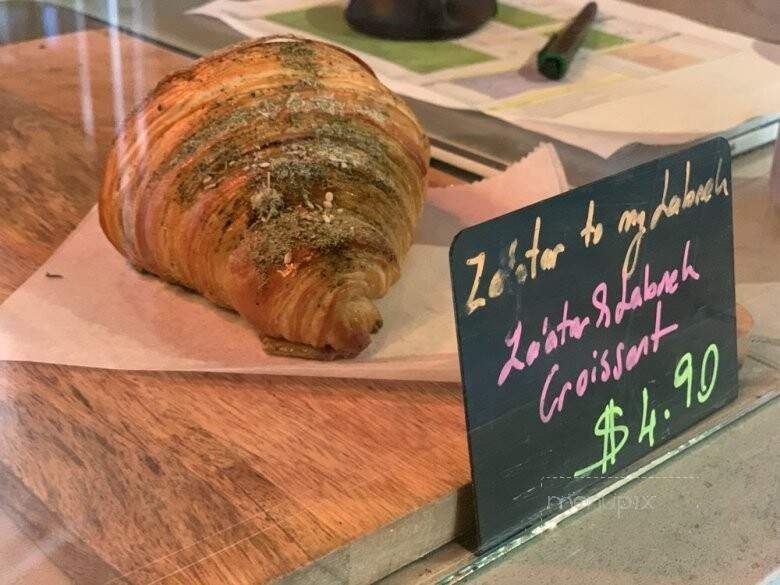 Za'atar to my Labneh
Za'atar & Labneh
Croissant
$4.90
menupix